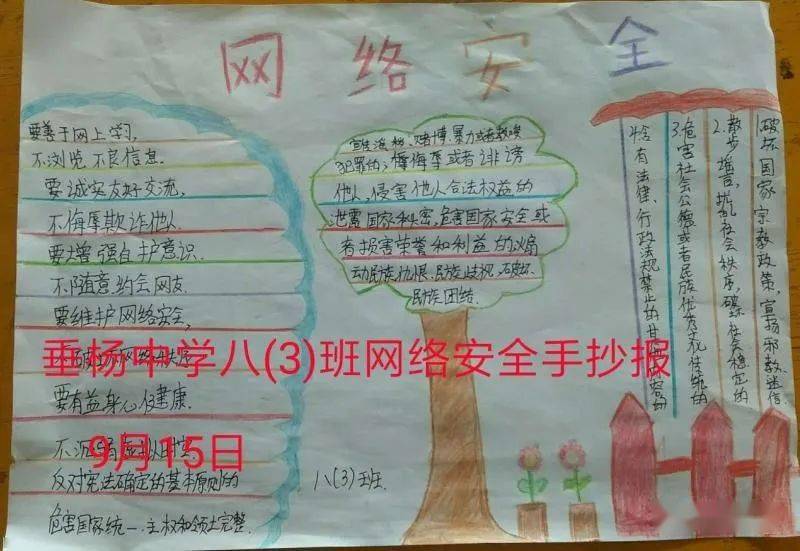 网络安全
要善于网上学习,
不浏览不良信息.
要诚实友好交流,
不侮辱欺诈他人.
要增强自护意识.
不随意约会网友.
要维护网络安全,
垂扬中学八(3)班网络安全手抄报
要有益身心健康.
9月15日
反对宪法确定的基本原则的
危害国家统一.主权和领土完整.
赌博.暴力或者教唆
犯罪的,侮辱或者诽谤
他人,侵害他人合法权益的
泄露国家秘密,危害国家安全或
者损害荣誉和利益的.煽
动民族仇恨.民族歧视.破坏
民族团结.
八(3)班
1.破坏国家宗教政策,宣扬邪教迷信.
2.散步谣言,扰乱社会秩序,破坏社会稳定的
3.危害社会公德或者民族优秀文化传统的
含有法律、行政法规禁止的